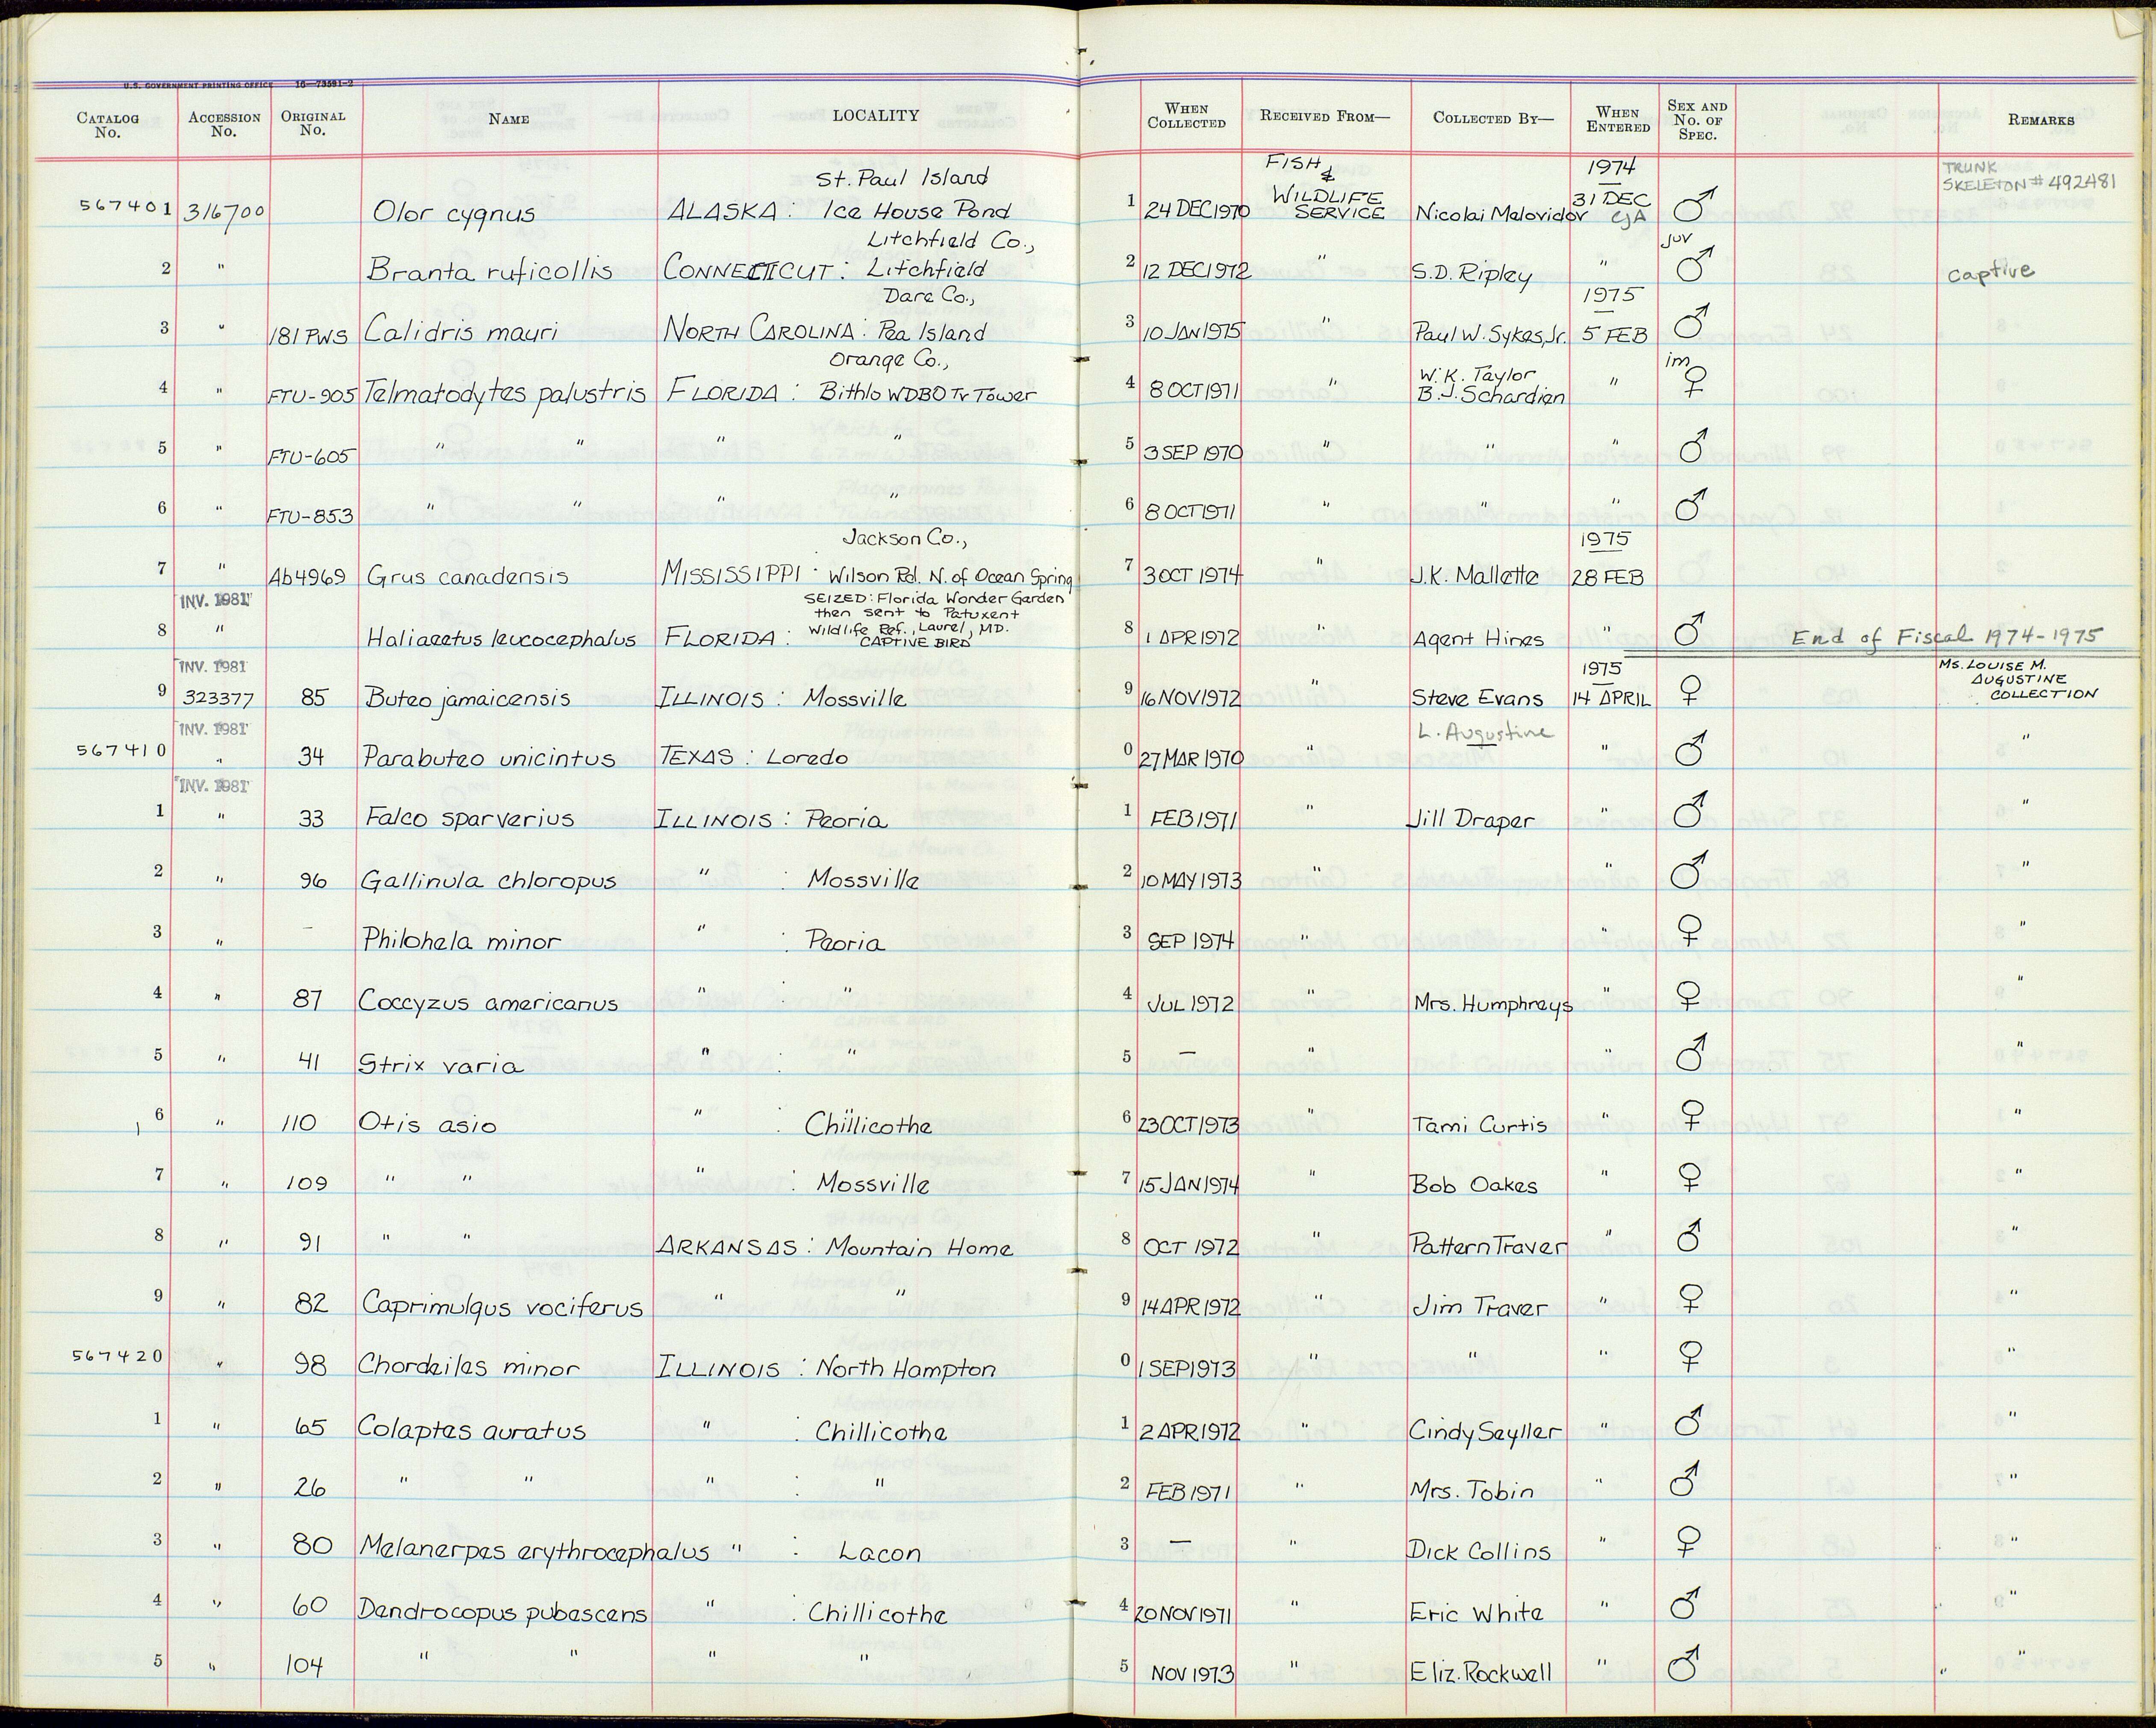 U.S. GOVERNMENT PRINTING OFFICE 16—73591-2
CATALOG No. ACCESSION No. ORIGINAL No. NAME LOCALITY WHEN COLLECTED RECEIVED FROM— COLLECTED BY— WHEN ENTERED SEX AND No. OF SPEC. REMARKS
St. Paul Island FISH & 1974 TRUNK
567401 316700 Olor cygnus ALASKA: Ice House Pond 1 24 DEC 1970 WILDLIFE SERVICE Nicolai Melovidov 31 DEC GJA ♂ SKELETON # 492481
Litchfield Co., juv
2 " Branta ruficollis CONNECTICUT: Litchfield 2 12 DEC 1972 " S.D. Ripley " ♂ captive
Dare Co., 1975
3 " 181 PWS Calidris mauri NORTH CAROLINA: Pea Island 3 10 JAN 1975 " Paul W. Sykes, Jr. 5 FEB ♂
Orange Co., W.K. Taylor im
4 " FTU-905 Telmatodytes palustris FLORIDA: Bithlo WDBO Tv Tower 4 8 OCT 1971 " B.J. Schardien " ♀
5 " FTU-605 " " " " 5 3 SEP 1970 " " " ♂
6 " FTU-853 " " " " 6 8 OCT 1971 " " " ♂
Jackson Co., 1975
7 " Ab4969 Grus canadensis MISSISSIPPI: Wilson Rd. N. of Ocean Spring 7 3 OCT 1974 " J.K. Mallette 28 FEB
INV. 1981 SEIZED: Florida Wonder Garden
then sent to Patuxent
Wildlife Ref., Laurel, MD.
8 " Haliaeetus leucocephalus FLORIDA: CAPTIVE BIRD 8 1 APR 1972 " Agent Hines " ♂ End of Fiscal 1974-1975
INV. 1981 1975 Ms. LOUISE M. AUGUSTINE
9 323377 85 Buteo jamaicensis ILLINOIS: Mossville 9 16 NOV 1972 " Steve Evans 14 APRIL ♀ COLLECTION
INV. 1981 L. Augustine
567410 " 34 Parabuteo unicintus TEXAS: Loredo 0 27 MAR 1970 " " ♂ "
INV. 1981
1 " 33 Falco sparverius ILLINOIS: Peoria 1 FEB 1971 " Jill Draper " ♂ "
2 " 96 Gallinula chloropus " : Mossville 2 10 MAY 1973 " " ♂ "
3 " – Philohela minor " : Peoria 3 SEP 1974 " " ♀ "
4 " 87 Coccyzus americanus " : " 4 JUL 1972 " Mrs. Humphreys " ♀ "
5 " 41 Strix varia " : " 5 — " " ♂ "
6 " 110 Otis asio " : Chillicothe 6 23 OCT 1973 " Tami Curtis " ♀ "
7 " 109 " " " : Mossville 7 15 JAN 1974 " Bob Oakes " ♀ "
8 " 91 " " ARKANSAS: Mountain Home 8 OCT 1972 " Pattern Traver " ♂ "
9 " 82 Caprimulgus vociferus " " 9 14 APR 1972 " Jim Traver " ♀ "
567420 " 98 Chordeiles minor ILLINOIS: North Hampton 0 1 SEP 1973 " " " ♀ "
1 " 65 Colaptes auratus " : Chillicothe 1 2 APR 1972 " Cindy Seyller " ♂ "
2 " 26 " " " : " 2 FEB 1971 " Mrs. Tobin " ♂ "
3 " 80 Melanerpes erythrocephalus " : Lacon 3 — " Dick Collins " ♀ "
4 " 60 Dendrocopus pubescens " : Chillicothe 4 20 NOV 1971 " Eric White " ♂ "
5 " 104 " " " " 5 NOV 1973 " Eliz. Rockwell " ♂ "